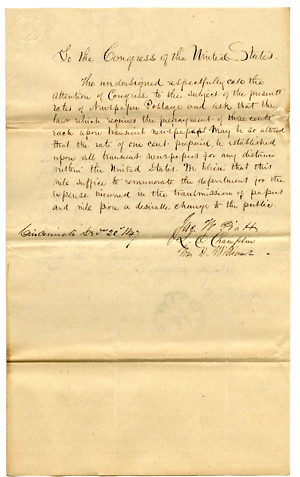 To the Congress of the United States.
The undersigned respectfully call the
attention of Congress to the subject of the present
rates of Newspaper Postage and ask that the
law which requires the prepayment of three cents
each upon transient newspapers may be so altered
that the rate of one cent, prepaid, be established
upon all transient newspapers for any distance
within the United States. We believe that this
will suffice to remunerate the department for the
expense incurred in the transmission of papers
and will prove a desirable change to the public.
Cincinnati Dec 28
Jas. W.
Champlin
Wm